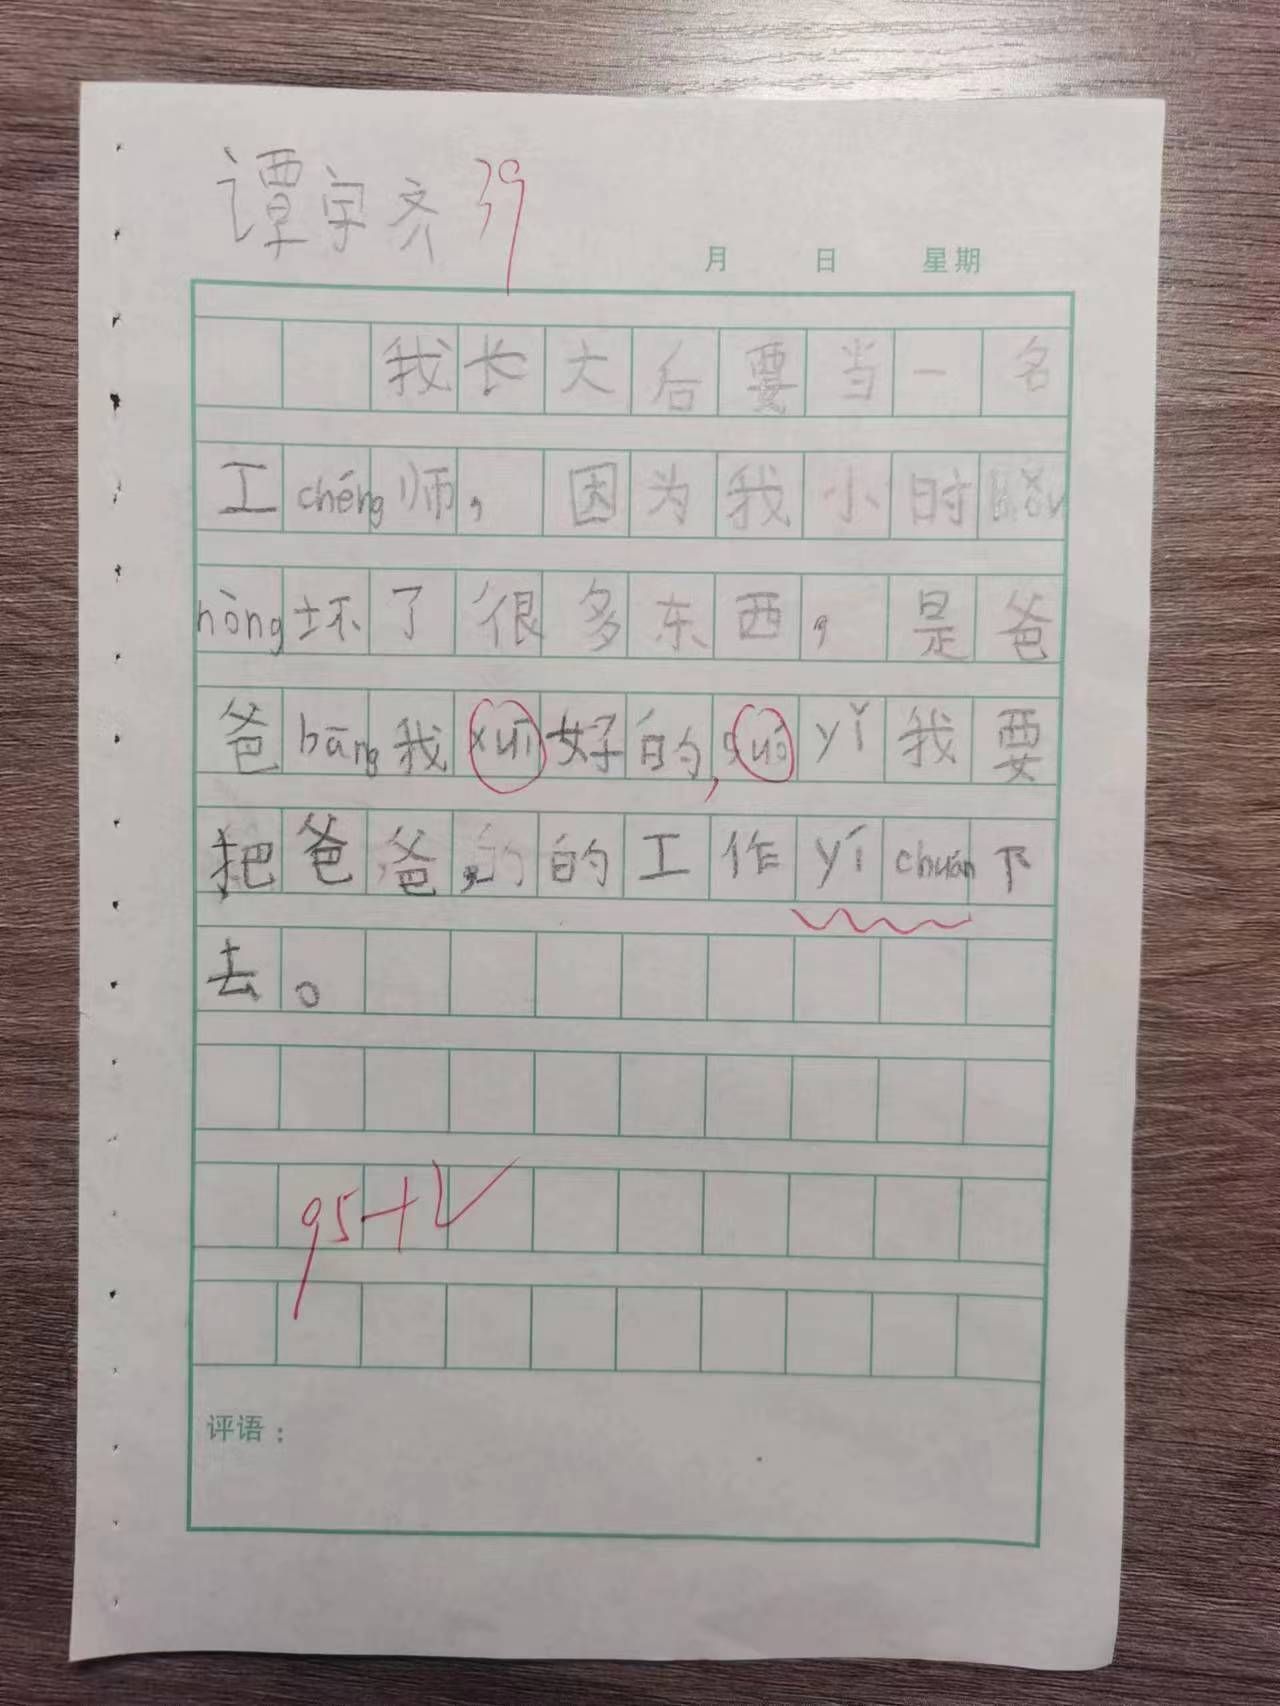 谭宇齐 39
月 日 星期
我长大后要当一名
工chéng师，因为我小时hòu
nòng坏了很多东西，是爸
爸bāng我xuī好的,suǒyǐ我要
把爸爸的的工作yíchuán下
去。
95+√
评语：